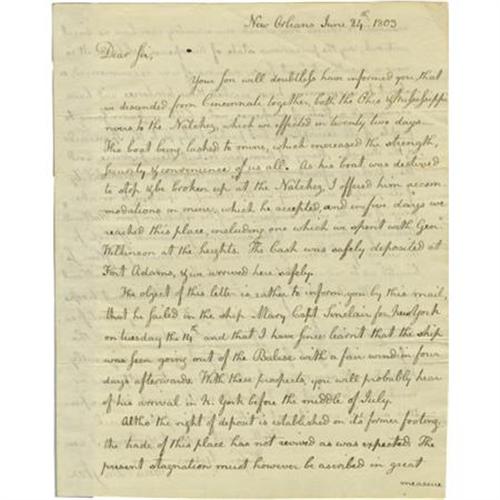 New Orleans June 24th 1803
Dear Sir,
Your Son will doubtless have informed you, that
we descended from Cincinnati together, both the Ohio & Mississippi
rivers to the Natchez, which we effected in twenty two days.
His boat being lashed to mine, which increased the strength,
security & convenience of us all. As his boat was destined
to stop & be broken up at the Natchez, I offered him accom
modations in mine, which he accepted, and in five days we
reached this place, including one which we spent with Genl
Wilkinson at the heights. The Cash was safely deposited at
Fort Adams, & we arrived here safely.
The object of this letter is rather to inform you by this mail,
that he sailed in the ship Mary Capt Sinclair for New York
on tuesday the 14th and that I have since learnt that the ship
was seen going out of the Balise with a fair wind in four
days afterwards. With these prospects, you will probably hear
of his arrival in N. York before the middle of July.
Altho' the right of deposit is established on it's former footing,
the trade of this place has not revived as was expected. The
present stagnation must however be ascribed in great
measure